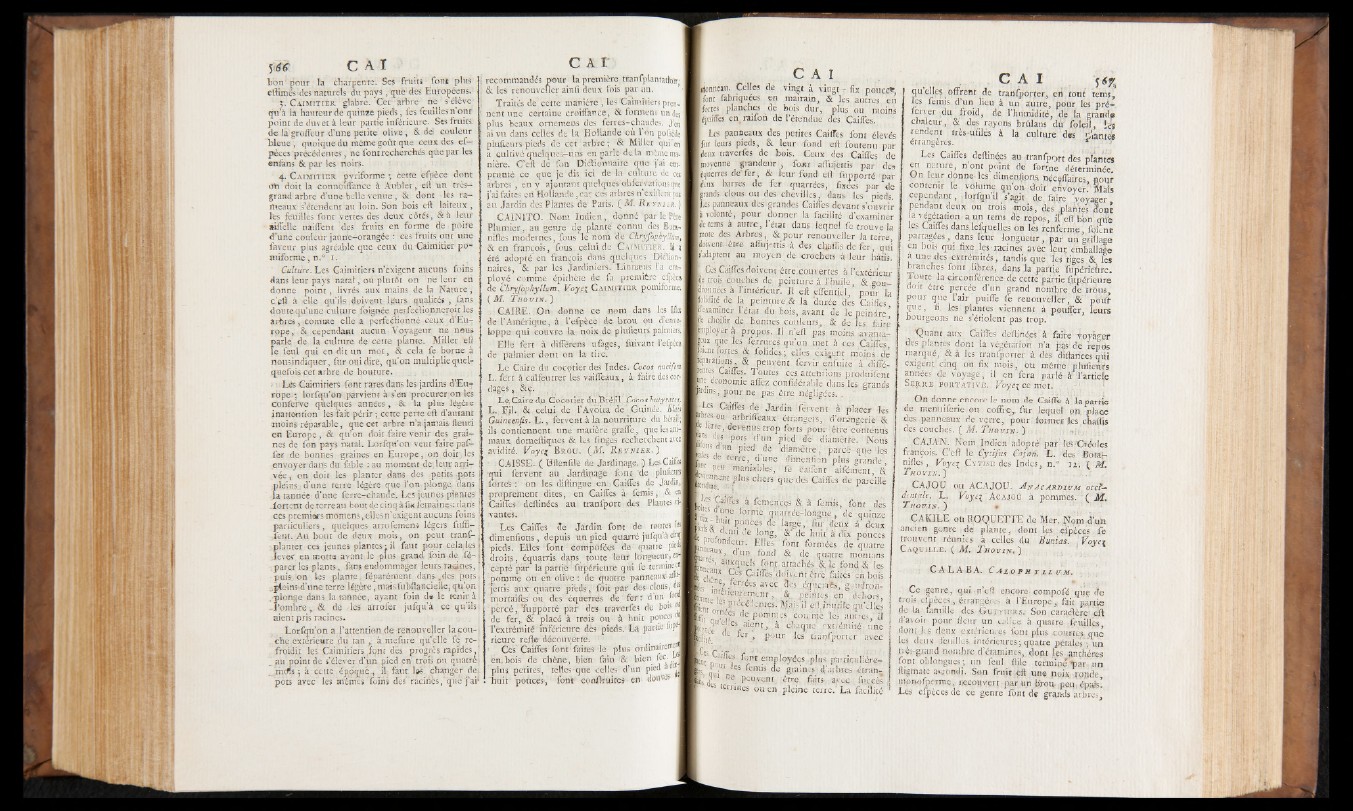 566 C A I
bon pour la charpente. Ses fruits font plus
eftimés des naturels du pays, que des Européens.
3. CAIMITIER glabre. Cet arbre ne s'élève
qu'à la hauteur de quinze pieds; fes feuilles n'ont
point de duvet à leur partie inférieure. Ses fruits
de la groffeur d'une petite olive, & de couleur
bleue, quoique du même goût que ceux des ef-
pèces précédentes, ne font recherchés que par les
enfans & par les noirs.
4. CAIMITIER pyriforme; cette efpèce dont
on doit la connoiffance à Aublet, eft un très-
grand arbre d'une belle venue, & dont les ra-
meaux s'étendent au loin. Son bois eft laiteux,
les feuilles font vertes des deux côtés, & à leur
aiffelle naiffent des fruits en forme de poire
d'une couleur jaune-orangée: ces fruits ont une
faveur plus agréable que ceux du Caimitier po-
miforme; n.° 1.
Culture. Les Caimitiers n'exigent aucuns foins
dans leur pays natal, ou plutôt on ne leur en
donne point, livrés aux mains de la Nature,
c'eft à elle qu'ils doivent leurs qualités, fans
doute qu'une culture foignée perfectionneroit les
arbres, comme elle a perfectionné ceux d'Eu-
rope, & cependant aucun Voyageur ne nous
parle de la culture de cette plante. Miller eft
le feul qui en dit un mot, & cela fe borne à
nous indiquer, fur ouï dire, qu'on multiplie quel-
quefois cet arbre de bouture.
Les Caimitiers font rares dans les jardins d'Eu-
rope; lorfqu'on parvient à s'en procurer on les
conferve quelques années, & la plus légère
inattention les fait périr; cette perte eft d'autant
moins réparable, que cet arbre n'a jamais fleuri
en Europe, & qu'on doit faire venir des grai-
nes de fon pays natal. Lorfqu'on veut faire paf-
fer de bonnes graines en Europe, on doit les
envoyer dans du fable: au moment de leur arri-
vée, on doit les planter dans des petits pots
pleins d'une terre légère que l'on plonge dans
la tannée d'une ferre-chaude. Les jeunes plantes
fortent de terre au bout de cinq à fix femaines: dans
ces premiers momens, elles n'exigent aucuns foins
particuliers, quelques arrofemens légers fuffi-
fent. Au bout de deux mois, on peut tranf-
planter ces jeunes plantes; il faut pour cela les
lever en motte avant le plus grand foin de fé-
parer les plants, fans endommager leurs racines,
puis on les plante féparément dans des pots
pleins d'une terre légère, mais fubftancielle, qu'on
plonge dans la tannée, ayant foin de le tenir à
l'ombre, & de les arrofer jufqu'à ce qu'ils
aient pris racines.
Lorfqu'on a l'attention de renouveller la cou-
che extérieure du tan, à mefure qu'elle fe re-
froidit les Caimitiers font des progrès rapides,
au point de s'élever d'un pied en trois ou quatre
mois; à cette époque, il faut les changer de
pots avec les mêmes foins des racines, que j'ai
C A I
recommandés pour la première tranfplantation,
& les renouveller ainfi deux fois par an.
Traités de cette manière, les Caimitiers pren-
nent une certaine croiffance, & forment un des
plus beaux ornemens des ferres-chaudes. J'en
ai vu dans celles de la Hollande où l'on poffède
plufieurs pieds de cet arbre; & Miller qui en
a cultivé quelques-uns en parle de la même ma-
nière. C'eft de fon Dictionnaire que j'ai em-
prunté ce que je dis ici de la culture de ces
arbres, en y ajoutant quelques obfervations que
j'ai faites en Hollande, car ces arbres n'exiftent pas
au Jardin des Plantes de Paris. ( M. REYNIER. )
CAINITO. Nom Indien, donné par le Père
Plumier, au genre de plante connu des Bota-
niftes modernes, fous le nom de Chryfophyllum,
& en françois, fous celui de CAIMITIER. Il a
été adopté en françois dans quelques Diction-
naires, & par les Jardiniers. Linnæus l'a em-
ployé comme épithète de fa première efpèce
de Chryfophyllum. Voyez CAIMITIER pomiforme.
( M. THOUIN. )
CAIRE. On donne ce nom dans les Ifles
de l'Amérique, à l'efpèce de brou ou d'enve-
loppe qui couvre la noix de plufieurs palmiers.
Elle fert à différens ufages, fuivant l'efpèce
de palmier dont on la tire.
Le Caire du cocotier des Indes. Cocos nucifera
L. fert à calfeutrer les vaiffeaux, à faire des cor-
dages, &c.
Le Caire du Cocotier du Bréfil Cocos butyracea.
L. Fil. & celui de l'Avoira de Guinée. Elais
Guineenfis. L., fervent à la nourriture du bétail;
ils contiennent une matière graffe, que les ani-
maux domeftiques & les finges recherchent avec
avidité. Voyez BROU. ( M. REYNIER. )
CAISSE. ( Uftenfile de Jardinage. ) Les Caiffes
qui fervent au Jardinage font de plufieurs
fortes: on les diftingue en Caiffes de Jardin,
proprement dites, en Caiffes à femis, & en
Caiffes deftinées au tranfport des Plantes vi-
vantes.
Les Caiffes de Jardin font de toutes les
dimenfions, depuis un pied quarré jufqu'à cinq
pieds. Elles font compofées de quatre pieds
droits, équarris dans toute leur longueur, ex-
cepté par la partie fupérieure qui fe termine en
pomme ou en olive: de quatre panneaux affu-
jettis aux quatre pieds, foit par des clous, des
mortaifes ou des équerres de fer: d'un fond
percé, fupporté par des traverfes de bois ou
de fer, & placé à trois ou à huit pouces de
l'extrémité inférieure des pieds. La partie fupé-
rieure refte découverte.
Ces Caiffes font faites le plus ordinairement
en bois de chêne, bien fain & bien fec. Les
plus petites, telles que celles d'un pied à dix-
huit pouces, font conftruites en douves de
C A I
tonneau. Celles de vingt à vingt-fix pouces,
font fabriquées en mairain, & les autres en
fortes planches de bois dur, plus ou moins
épaiffes en raifon de l'étendue des Caiffes.
Les panneaux des petites Caiffes font élevés
fur leurs pieds, & leur fond eft foutenu par
deux traverfes de bois. Ceux des Caiffes de
moyenne grandeur, font affujettis par des
équerres de fer, & leur fond eft fupporté par
deux barres de fer quarrées, fixées par de
grands clous ou des chevilles, dans les pieds.
Les panneaux des grandes Caiffes devant s'ouvrir
à volonté, pour donner la facilité d'examiner
de tems à autre, l'état dans lequel fe trouve la
motte des Arbres, & pour renouveller la terre,
doivent être affujettis à des chaffis de fer, qui
s'adaptent au moyen de crochets à leur bâtis.
Ces Caiffes doivent être couvertes à l'extérieur
de trois couches de peinture à l'huile, & gou-
dronnées à l'intérieur. Il eft effentiel, pour la
folidité de la peinture & la durée des Caiffes,
d'examiner l'état du bois, avant de le peindre,
de choifir de bonnes couleurs, & de les faire
employer à propos. Il n'eft pas moins avanta-
geux que les ferrures qu'on met à ces Caiffes,
foient fortes & folides; elles exigent moins de
réparations, & peuvent fervir enfuite à diffé-
rentes Caiffes. Toutes ces attentions produifent
une économie affez confidérable dans les grands
jardins, pour ne pas être négligées.
Les Caiffes de Jardin fervent à placer les
arbres ou arbriffeaux étrangers, d'orangerie &
de ferre, devenus trop forts pour être contenus
dans des pots d'un pied de diamètre. Nous
difons d'un pied de diamètre, parce que les
vafes de terre, d'une dimenfion plus grande,
font peu maniables, fe caffent aifément, &
deviennent plus chers que des Caiffes de pareille
étendue.
Les Caiffes à femences & à femis, font des
boîtes d'une forme quarrée-longue, de quinze
à dix-huit pouces de large, fur deux à deux
pieds & demi de long, & de huit à dix pouces
de profondeur. Elles font formées de quatre
panneaux, d'un fond & de quatre montans
auxquels font attachés & le fond & les
panneaux. Ces Caiffes doivent être faites en bois
de chêne, ferrées avec des équerres, goudron-
nées intérieurement, & peintes en dehors,
comme les précédentes. Mais il eft inutile qu'elles
foient ornées de pommes comme les autres, il
fuffit qu'elles aient, à chaque extrémité une
poignée de fer, pour les tranfporter avec
Ces Caiffes font employées plus particulière-
ment pour les femis de graines d'arbres étran-
gers, qui ne peuvent être faits avec fuccès
dans des terrines ou en pleine terre. La facilité
C A I 567
qu'elles offrent de tranfporter, en tout tems,
les femis d'un lieu à un autre, pour les pré-
ferver du froid, de l'humidité, de la grande
chaleur, & des rayons brûlans du foleil, les
rendent très-utiles à la culture des plantes
étrangères.
Les Caiffes deftinées au tranfport des plantes
en nature, n'ont point de forme déterminée.
On leur donne les dimenfions néceffaires, pour
contenir le volume qu'on doit envoyer. Mais
cependant, lorfqu'il s'agit de faire voyager,
pendant deux ou trois mois, des plantes dont
la végétation a un tems de repos, il eft bon que
les Caiffes dans lefquelles on les renferme, foient
partagées, dans leur longueur, par un grillage
en bois qui fixe les racines avec leur emballage
à une des extrémités, tandis que les tiges & les
branches font libres, dans la partie fupérieure.
Toute la circonférence de cette partie fupérieure
doit être percée d'un grand nombre de trous,
pour que l'air puiffe fe renouveller, & pour
que, fi les plantes viennent à pouffer, leurs
bourgeons ne s'étiolent pas trop.
Quant aux Caiffes deftinées à faire voyager
des plantes dont la végétation n'a pas de repos
marqué, & à les tranfporter à des diftances qui
exigent cinq ou fix mois, ou même plufieurs
années de voyage, il en fera parlé à l'article
SERRE PORTATIVE. Voyez ce mot.
On donne encore le nom de Caiffe à la partie
de menuiferie ou coffre, fur lequel on place
des panneaux de verre, pour former les chaffis
des couches. ( M. THOUIN. )
CAJAN. Nom Indien adopté par les Créoles
françois. C'eft le Cytifus Cajan. L. des Bota-
niftes, Voyez CYTISE des Indes, n.° 12. ( M.
THOUIN. )
CAJOU ou ACAJOU. ANACARDIUM occi-
dentale. L. Voyez ACAJOU à pommes. ( M.
THOUIN. )
CAKILE ou ROQUETTE de Mer. Nom d'un
ancien genre de plante, dont les efpèces fe
trouvent réunies à celles du Bunias. Voyez
CAQUILLE. ( M. THOUIN. )
CALABA. CALOPHYLLUM.
Ce genre, qui n'eft encore compofé que de
trois efpèces, étrangères à l'Europe, fait partie
de la famille des GUTTIERS. Son caractère eft
d'avoir pour fleur un calice à quatre feuilles,
dont les deux extérieures font plus courtes que
les deux feuilles intérieures; quatre pétales; un
très-grand nombre d'étamines, dont les anthères
font oblongues; un feul ftile terminé par un
ftigmate arrondi. Son fruit eft une noix ronde,
monofperme, recouvert par un brou peu épais.
Les efpèces de ce genre font de grands arbres,